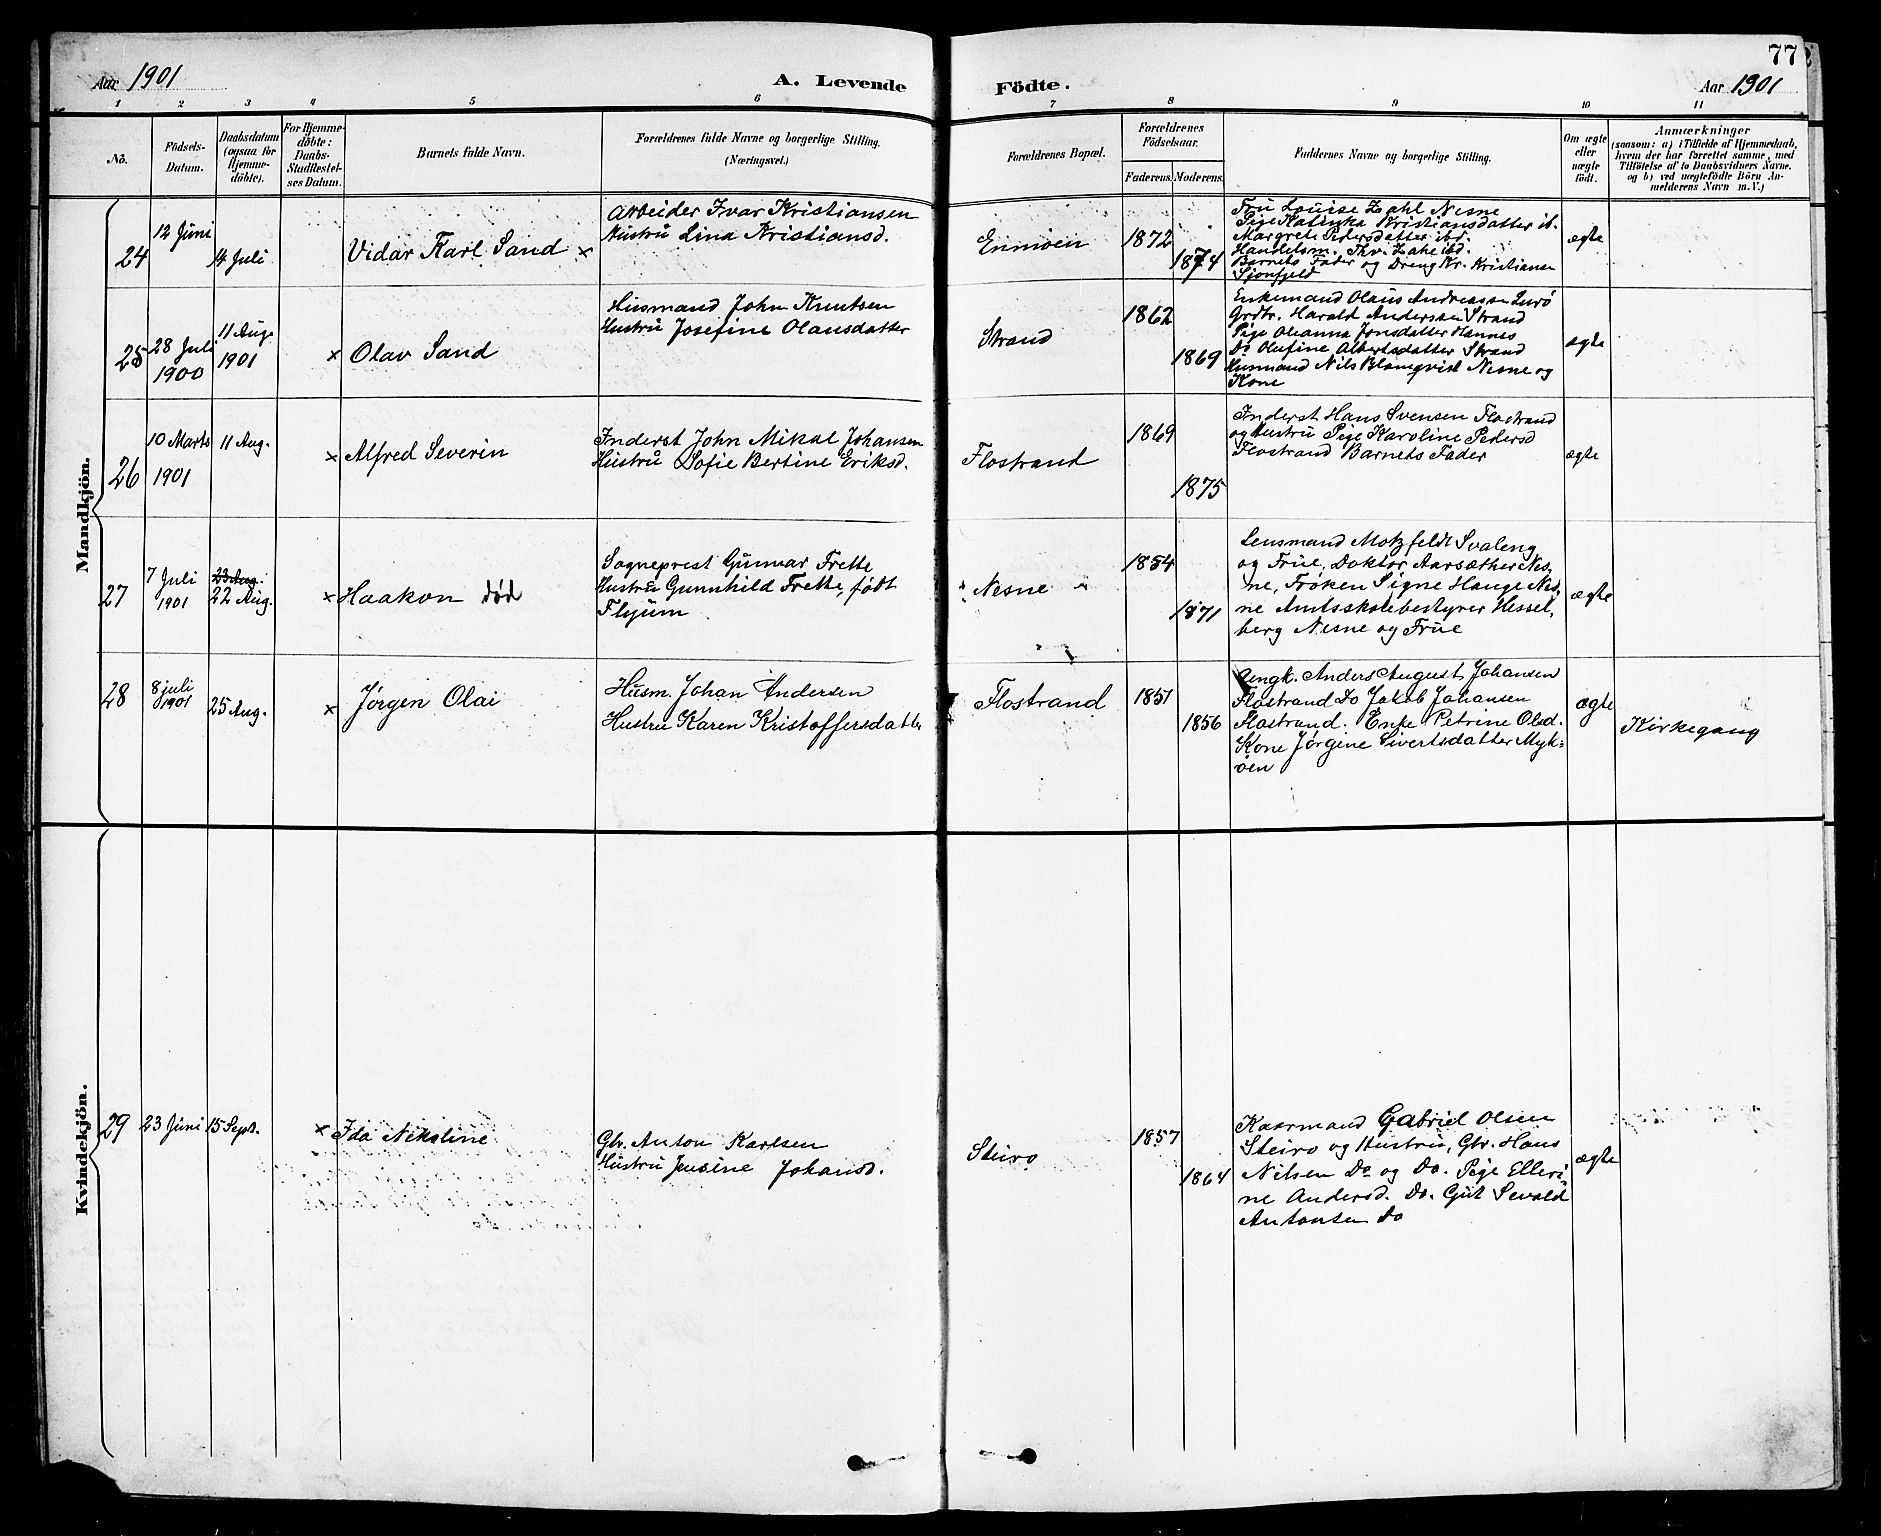 77
Aar 1901
A. Levende
Födte.
Aar 1901
1 2 3 4 5 6 7 8 9 10 11
No.
Födsels-
Datum.
Daabsdatum
(ogsaa for
Hjemme-
döbte).
For Hjemme-
döbte:
Daabs-
Stadfæstel-
ses Datum.
Barnets fulde Navn.
Forældrenes fulde Navne og borgerlige Stilling.
(Næringsvei.)
Forældrenes Bopæl.
Forældrenes
Födselsaar.
Faderens. Moderens.
Faddernes Navne og borgerlige Stilling.
Om ægte
eller
uægte
födt.
Anmærkninger
(saasom: a) i Tilfælde af Hjemmedaab,
hvem der har forrettet samme, med
Tilföielse af to Daabsvidners Navne.
og b) ved uægtefödte Börn An-
melderens Navn m. V.)
Mandkjön.
24
12 Juni
14 Juli
Vidar Karl Sand ×
Arbeider Ivar Kristiansen
Hustru Lina Kristiansd.
1872
1874
Fru Louise Zahl Nesne
Pige Katinka Kristiansdatter ib.
Margrete Pedersdatter ibd.
Handelsm. Thv. Zahl ibd.
Barnets Fader og Dreng Kr. Kristiansen
Sjonfjeld
ægte
25
28 Juli
1900
11 Aug.
1901
× Olav Sand
Husmand John Knutsen
Hustru Josefine Olausdatter
Strand
1862
1869
Enkemand Olaus Andreassen Lurö
Grdbr. Harald Andersen Strand
Pige Oleanna Jonsdatter Hannes
Do Olufine Albertsdatter Strand
Husmand Nils Blomqvist Nesne og
Kone
ægte
26
10 Marts
1901
11 Aug.
× Alfred Severin
Inderst John Mikal Johansen
Hustru Sofie Bertine Eriksd.
Flostrand
1869
1875
Inderst Hans Svensen Flostrand
og Hustru Pige Karoline Pedersd
Flostrand Barnets Fader
ægte
27
7 Juli
1901
23 Aug.
22 Aug.
× Haakon død
Sogneprest Gunvar Frette
Hustru Gunnhild Frette, født
Flyum
Nesne
1854
1871
Lensmand Motzfeldt Svaleng
og Frue, Doktor Aarsæther Nes-
ne, Frøken Signe Hauge Nes-
ne Amtsskolebestyrer Hessel-
berg Nesne og Frue
ægte
28
8 juli
1901
25 Aug.
× Jørgen Olai
Husm. Johan Andersen
Hustru Karen Kristoffersdatter
Flostrand
1851
1856
Ungk. Anders August Johansen
Flostrand Do Jakob Johansen
Flostrand. Enke Petrine Olsd.
Kone Jørgine Sivertsdatter Myk-
øen
ægte
Kirkegang
Kvindekjön.
29
23 Juni
15 Sept.
× Ida Nikoline
Gbr. Anton Karlsen
Hustru Jensine Johansd.
Steiro
1857
1864
Kaarmand Gabriel Olsen
Steiro og Hustru, Gbr. Hans
Nilsen Do og Do. Pige Elleri-
ne Andersd. Do. Gut Sevald
Antonsen Do
ægte